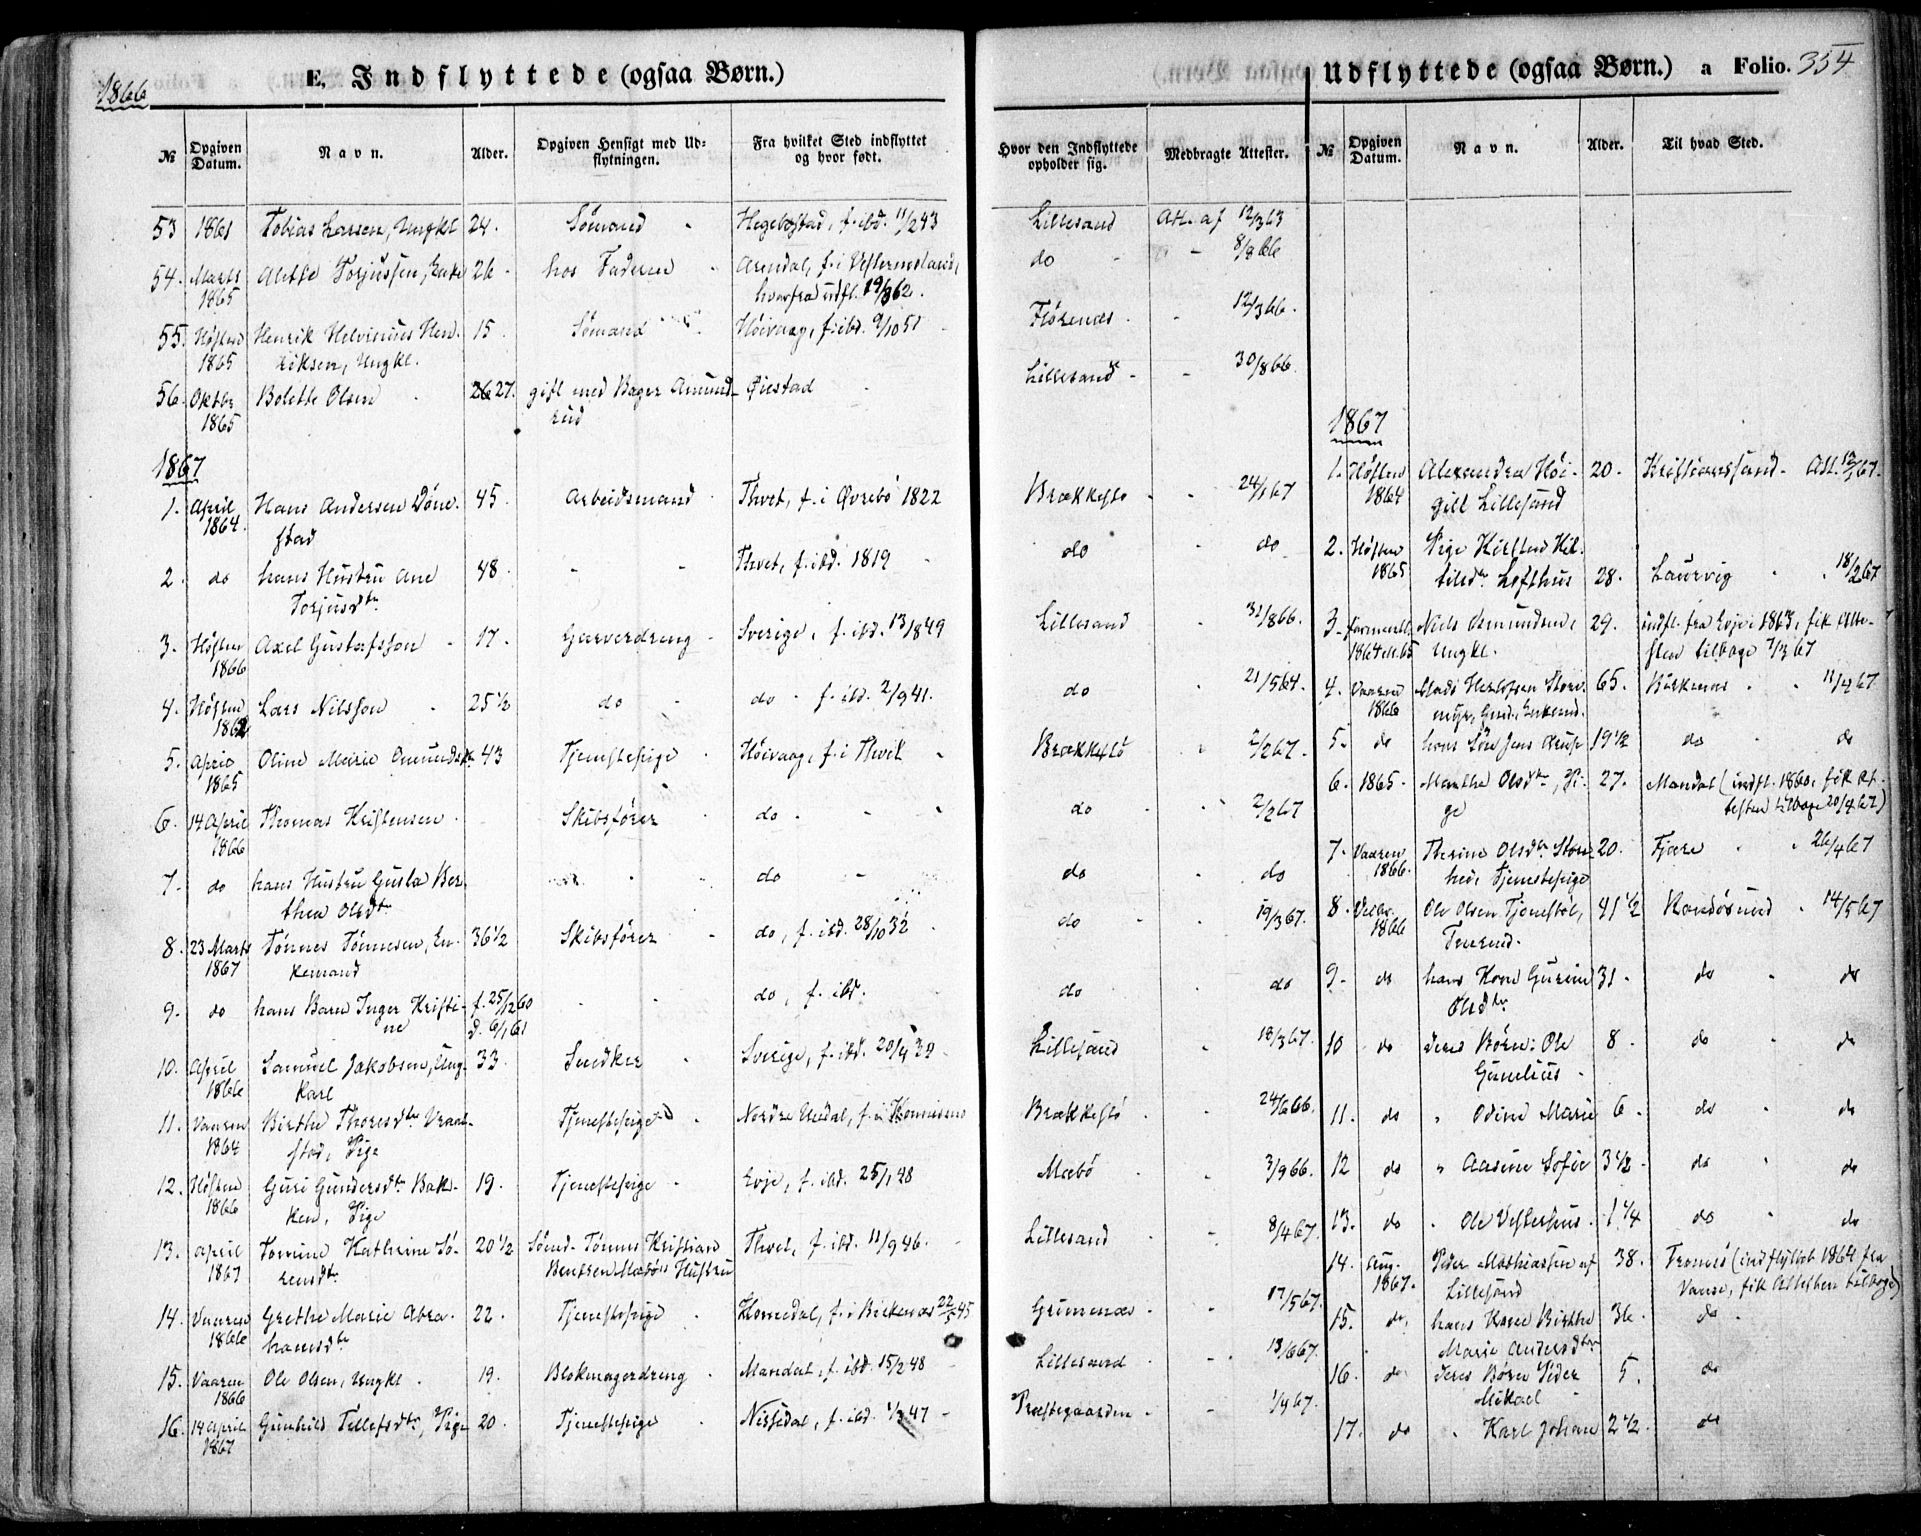 1866
E. Indflyttede (ogsaa Børn.)
№ Opgiven Datum. Navn. Alder. Opgiven Hensigt med Udflytningen. Fra hvilket Sted indflyttet og hvor født.
53 1861 Tobias Larsen, Ungkl 24. Sømand Hegebostad, f. ibd. 11/2 43
54. Marts Alette Torjussen, Enke 26 hos Faderen Arendal, f. i Vestermoland,
1865 hvorfra udfl. 19/3 62.
55. Høsten Henrik Helvinius Hen- 15. Sømand Høivaag, f. ibd. 9/10 51
1865 riksen, Ungkl.
56. Oktbr Bolette Olsen 26 27. gift med Bager Amund- Øiestad
1865 rud
1867
1. April Hans Andersen Døne- 45. Arbeidsmand Thvet, f. i Øvrebø 1822
1864. stad
2. do hans Hustru Ane 48. - - Thvet, f. ibd. 1819
Torjusdtr
3. Høsten Axel Gustafsson 17. Garverdreng Sverige, f. ibd. 13/8 49
1866
4. Høsten Lars Nilsson 25 1/2 do do f. ibd. 2/9 41.
186
5. April Oline Marie Amundsdtr 43 Tjenestepige Høivaag, f. i Thvet
1865
6. 14 April Thomas Kristensen Skibsfører do
1866
7. do hans Hustru Gusta Ber- do
thea Olsdtr
8. 23 Marts Tønnes Tønnesen, En- 36 1/2 Skibsfører do, f. ibd. 28/10 32
1867 kemand
9. do hans Barn Inger Kristi- f. 25/12 60 do, f. ibd.
ne d. 6/1 61
10. April Samuel Jakobsen, Ung- 33. Snedker Sverige, f. ibd. 20/4 39
1866 karl
11. Vaaren Birthe Thoresdtr Vraal- Tjenestepige Nordre Undal, f. i
1864 stad, Pige
12. Høsten Guri Gundersdtr Bak- 19. Tjenestepige Evje, f. ibd. 25/1 48
1866 ken, Pige
13. April Tomine Kathrine Sø- 20 1/2 Sømd. Tønnes Kristian Thvet, f. ibd. 11/9 46.
1867 rensdtr Bentsen Mæbøs Hustru
14. Vaaren Grethe Marie Abra- 22. Tjenestepige Homedal, f. i Birkenæs 22/5 45
1866 hamsdtr
15. Vaaren Ole Olsen, Ungkl. 19. Blokmagerdreng Mandal, f. ibd. 15/2 48
1866
16. 14 April Gunhild Tellefsdtr, Pige 20. Tjenestepige Nissedal, f. ibd. 1/3 47
1867
Udflyttede (ogsaa Børn.) a Folio. 354
Hvor den Indflyttede opholder sig. Medbragte Attester. № Opgiven Datum. Navn. Alder. Til hvad Sted.
Lillesand Att. af 12/3 63
do 8/8 66
Flørenæs 12/3 66.
Lillesand 30/8 66.
1867
Brækkestø 24/1 67 1. Høsten Alexandra Høi- 20. Kristianssand Att. 12/1 67.
1864 gill Lillesand
do do 2. Høsten Pige Kirsten Kit-
1865 tilsdtr Lofthus 28. Laurvig 18/2 67
Lillesand 31/8 66. 3. Niels Amundsen, 29. indfl. fra Evje i 1863, fik Atte-
Ungkl. sten tilbage 7/3 67
do 21/5 64. 4. Vaaren Mads Herlofsen Store- 65. Birkenæs 11/4 67
1866 myr, Gmd. Enkemd.
Brækkestø 2/2 67. 5. do hans Søn Jens Arup 19 1/2 do do
do 2/2 67 6. 1865. Marthe Olsdtr, Pi- 27. Mandal (indfl. 1860, fik At-
ge testen tilbage 20/4 67)
do do 7. Vaaren Therine Olsdtr Store- 20. Fjære 26/4 67
1866. hei, Tjenestepige
do 19/3 67. 8. Ole Olsen Tjønstøl, 41 1/2 Randøsund 14/5 67
1866
do do 9. do hans Kone Gurine 31. do do
Olsdtr
Lillesand 18/3 67. 10 do deres Børn: Ole 8. do do
Gunelius
Brækkestø 24/6 66. 11. do " Odine Marie 6. do do
Mæbø 3/9 66. 12 do " Aasine Sofie 3 1/2 do do
Lillesand 8/4 67. 13. do " Ole Vesterhus 1 1/4 do do
Grimenæs 17/5 67. 14. Aug. Peder Mathiassen af 38. Tromsø (indflyttet 1864 fra
1867. Lillesand Vanse, fik Attesten tilbage)
Lillesand 13/6 67. 15. do. hans Kone Birthe 36. do
Marie Andersdtr
Præstegaarden 1/4 67. 16. do deres Børn Peder 5. do
Mikael
17. do " Karl Johan 2 1/2. do